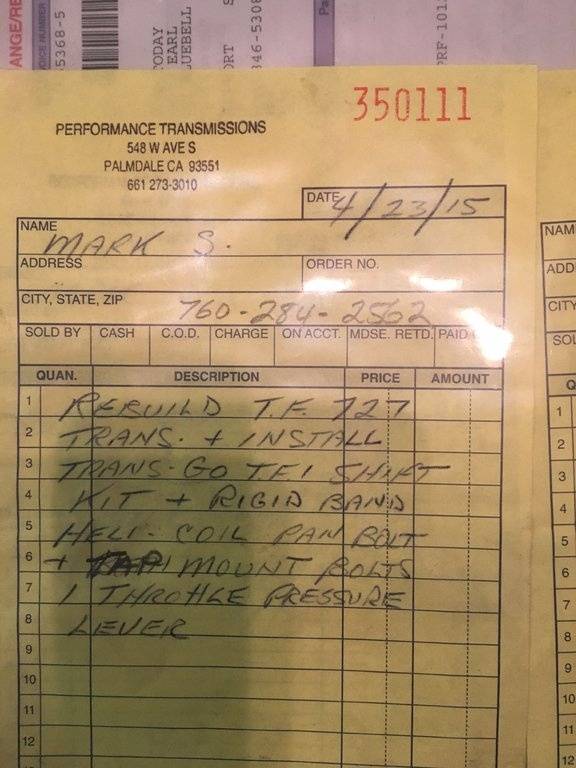 ANGE/RE
OICE NUMBER
5368-5
TODAY
EARL
LUEBELL
ORT S
346-5308
Pa
PRF-101
350111
PERFORMANCE TRANSMISSIONS
548 W AVE S
PALMDALE CA 93551
661 273-3010
DATE 4/23/15
NAME MARK S.
ADDRESS
ORDER NO.
CITY, STATE, ZIP 760-284-2562
SOLD BY CASH C.O.D. CHARGE ON ACCT. MDSE. RETD. PAID
QUAN. DESCRIPTION PRICE AMOUNT
1 REBUILD T.F. 727
2 TRANS. + INSTALL
3 TRANS-GO T.F.1 SHIFT
4 KIT + RIGID BAND
5 HELI-COIL PAN BOLT
6 + MOUNT BOLTS
7 1 THROTTLE PRESSURE
8 LEVER
9
10
11
12
NAM
ADD
CITY
SOL
Q
1
2
3
4
5
6
7
8
9
10
11
12